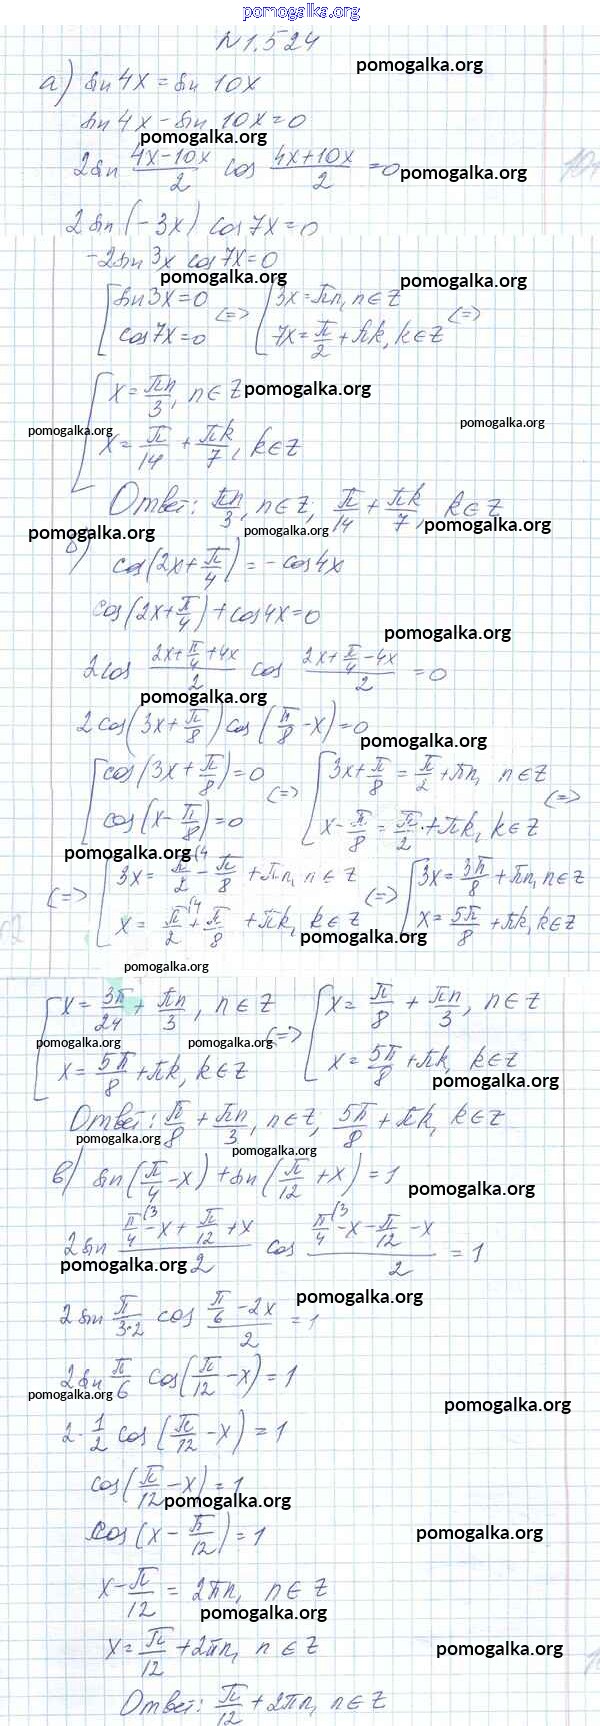 pomogalka.org
N1.524
pomogalka.org
а) sin 4x = sin 10x
sin 4x - sin 10x = 0
pomogalka.org
2 sin (4x-10x)/2 cos (4x+10x)/2 = 0
pomogalka.org
2 sin (-3x) cos 7x = 0
-2 sin 3x cos 7x = 0
pomogalka.org
pomogalka.org
[ sin 3x = 0 <=> [ 3x = πn, n∈Z <=>
cos 7x = 0 7x = π/2 + πk, k∈Z
[ x = πn/3, n∈Z
pomogalka.org
pomogalka.org
pomogalka.org
x = π/14 + πk/7, k∈Z
Ответ: πn/3, n∈Z; π/14 + πk/7, k∈Z
pomogalka.org
pomogalka.org
pomogalka.org
б) cos(2x + π/4) = - cos 4x
cos(2x + π/4) + cos 4x = 0
pomogalka.org
2 cos (2x + π/4 + 4x)/2 cos (2x + π/4 - 4x)/2 = 0
pomogalka.org
2 cos(3x + π/8) cos(π/8 - x) = 0
pomogalka.org
[ cos(3x + π/8) = 0 <=> [ 3x + π/8 = π/2 + πn, n∈Z <=>
cos(x - π/8) = 0 x - π/8 = π/2 + πk, k∈Z
pomogalka.org
<=> [ 3x = π/2 (4 - π/8 + πn, n∈Z <=> [ 3x = 3π/8 + πn, n∈Z
x = π/2 (4 + π/8 + πk, k∈Z x = 5π/8 + πk, k∈Z
pomogalka.org
pomogalka.org
[ x = 3π/24 + πn/3, n∈Z <=> [ x = π/8 + πn/3, n∈Z
pomogalka.org
pomogalka.org
x = 5π/8 + πk, k∈Z x = 5π/8 + πk, k∈Z
pomogalka.org
Ответ: π/8 + πn/3, n∈Z, 5π/8 + πk, k∈Z
pomogalka.org
pomogalka.org
в) sin(π/4 - x) + sin(π/12 + x) = 1
pomogalka.org
2 sin (π/4 (3 - x + π/12 + x)/2 cos (π/4 (3 - x - π/12 - x)/2 = 1
pomogalka.org
pomogalka.org
2 sin π/3·2 cos (π/6 - 2x)/2 = 1
2 sin π/6 cos(π/12 - x) = 1
pomogalka.org
pomogalka.org
2 · 1/2 cos(π/12 - x) = 1
cos(π/12 - x) = 1
pomogalka.org
cos(x - π/12) = 1
pomogalka.org
x - π/12 = 2πn, n∈Z
pomogalka.org
x = π/12 + 2πn, n∈Z
pomogalka.org
Ответ: π/12 + 2πn, n∈Z